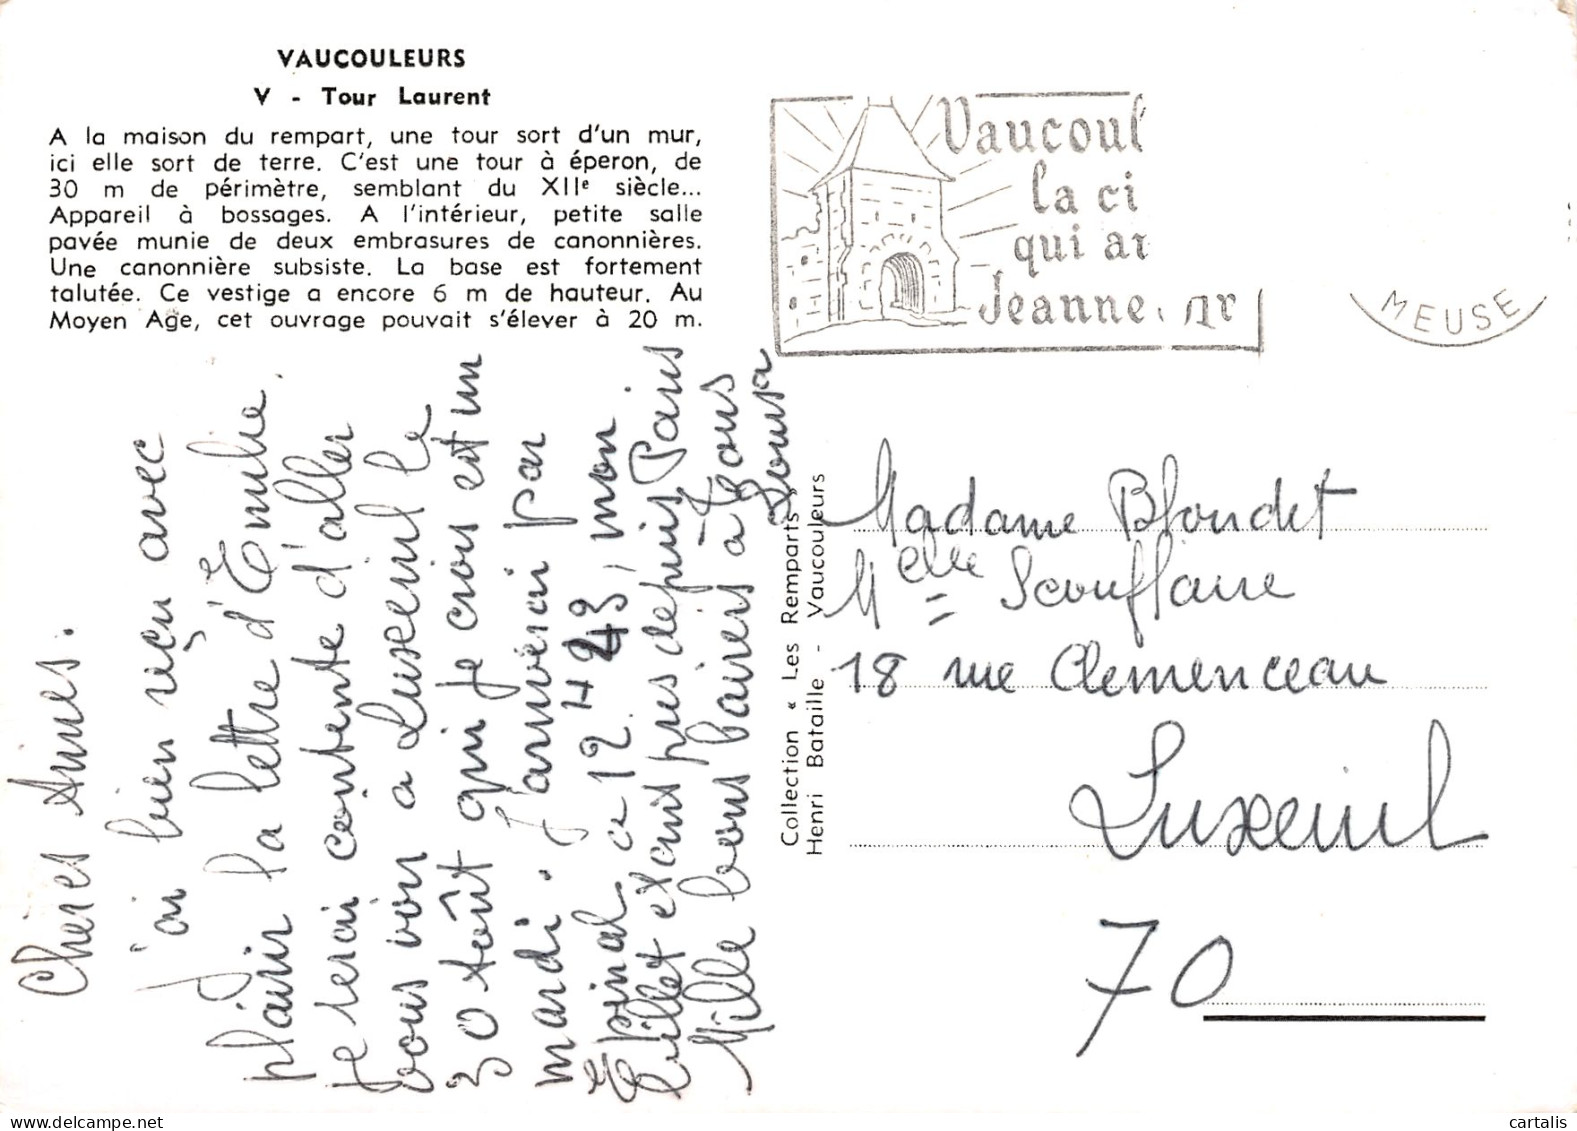 VAUCOULEURS
V - Tour Laurent
A la maison du rempart, une tour sort d'un mur,
ici elle sort de terre. C'est une tour à éperon, de
30 m de périmètre, semblant du XIIe siècle...
Appareil à bossages. A l'intérieur, petite salle
pavée munie de deux embrasures de canonnières.
Une canonnière subsiste. La base est fortement
talutée. Ce vestige a encore 6 m de hauteur. Au
Moyen Age, cet ouvrage pouvait s'élever à 20 m.
Chères Amies.
J'ai bien reçu avec
plaisir la lettre d'Emilie.
Je serai contente d'aller
vous voir a Luxeuil le
30 Août qui je crois est un
mardi. J'arriverai par
Épinal a 12 H 43, mon
billet étant pris depuis Paris
Mille bons baisers à tous
Collection « Les Remparts »
Henri Bataille - Vaucouleurs
Vaucoul
la ci
qui ar
Jeanne
MEUSE
Madame Blondet
Melle Scouflaire
18 rue Clemenceau
Luxeuil
70
cartalis